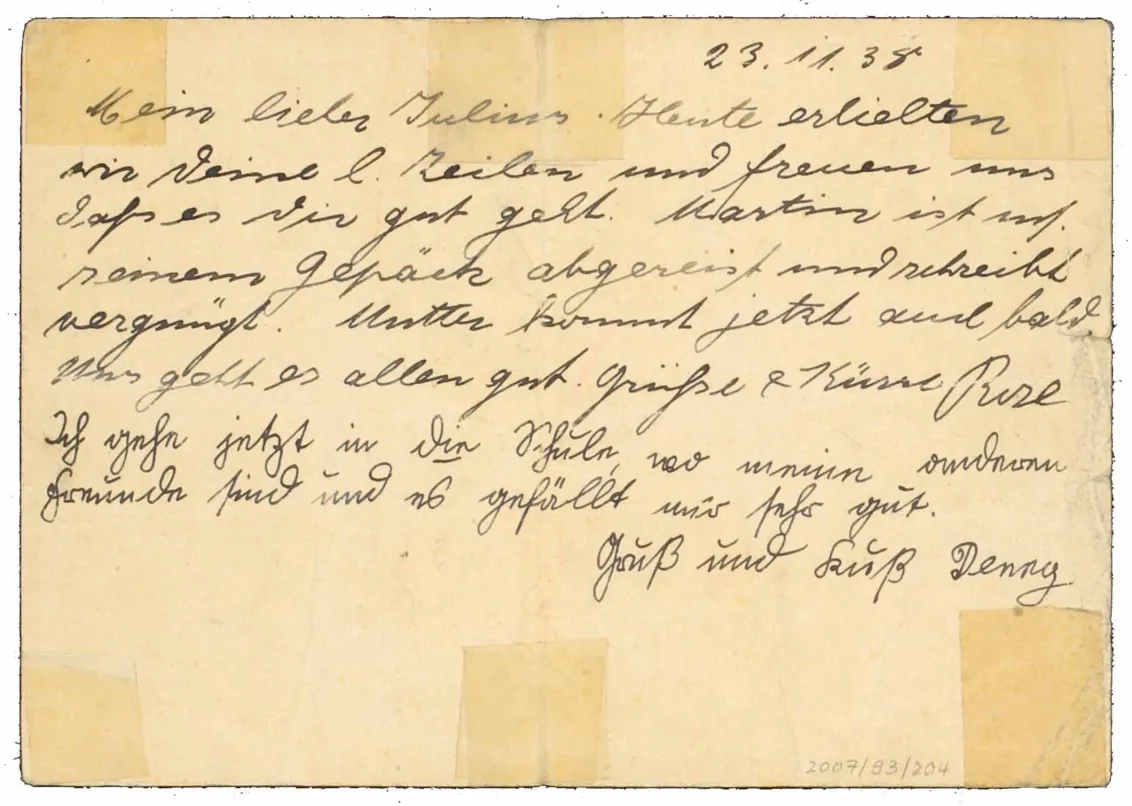 23. 11. 38
Mein lieber Julius. Heute erhielten
wir Deine l. Zeilen und freuen uns
daß es dir gut geht. Martin ist mit
seinem Gepäck abgereist und schreibt
vergnügt. Mutter kommt jetzt auch bald.
Uns geht es allen gut. Grüße & Küsse Rose
Ich gehe jetzt in die Schule, wo meine anderen
Freunde sind und es gefällt mir sehr gut.
Gruß und Kuß Denny
2007/93/204